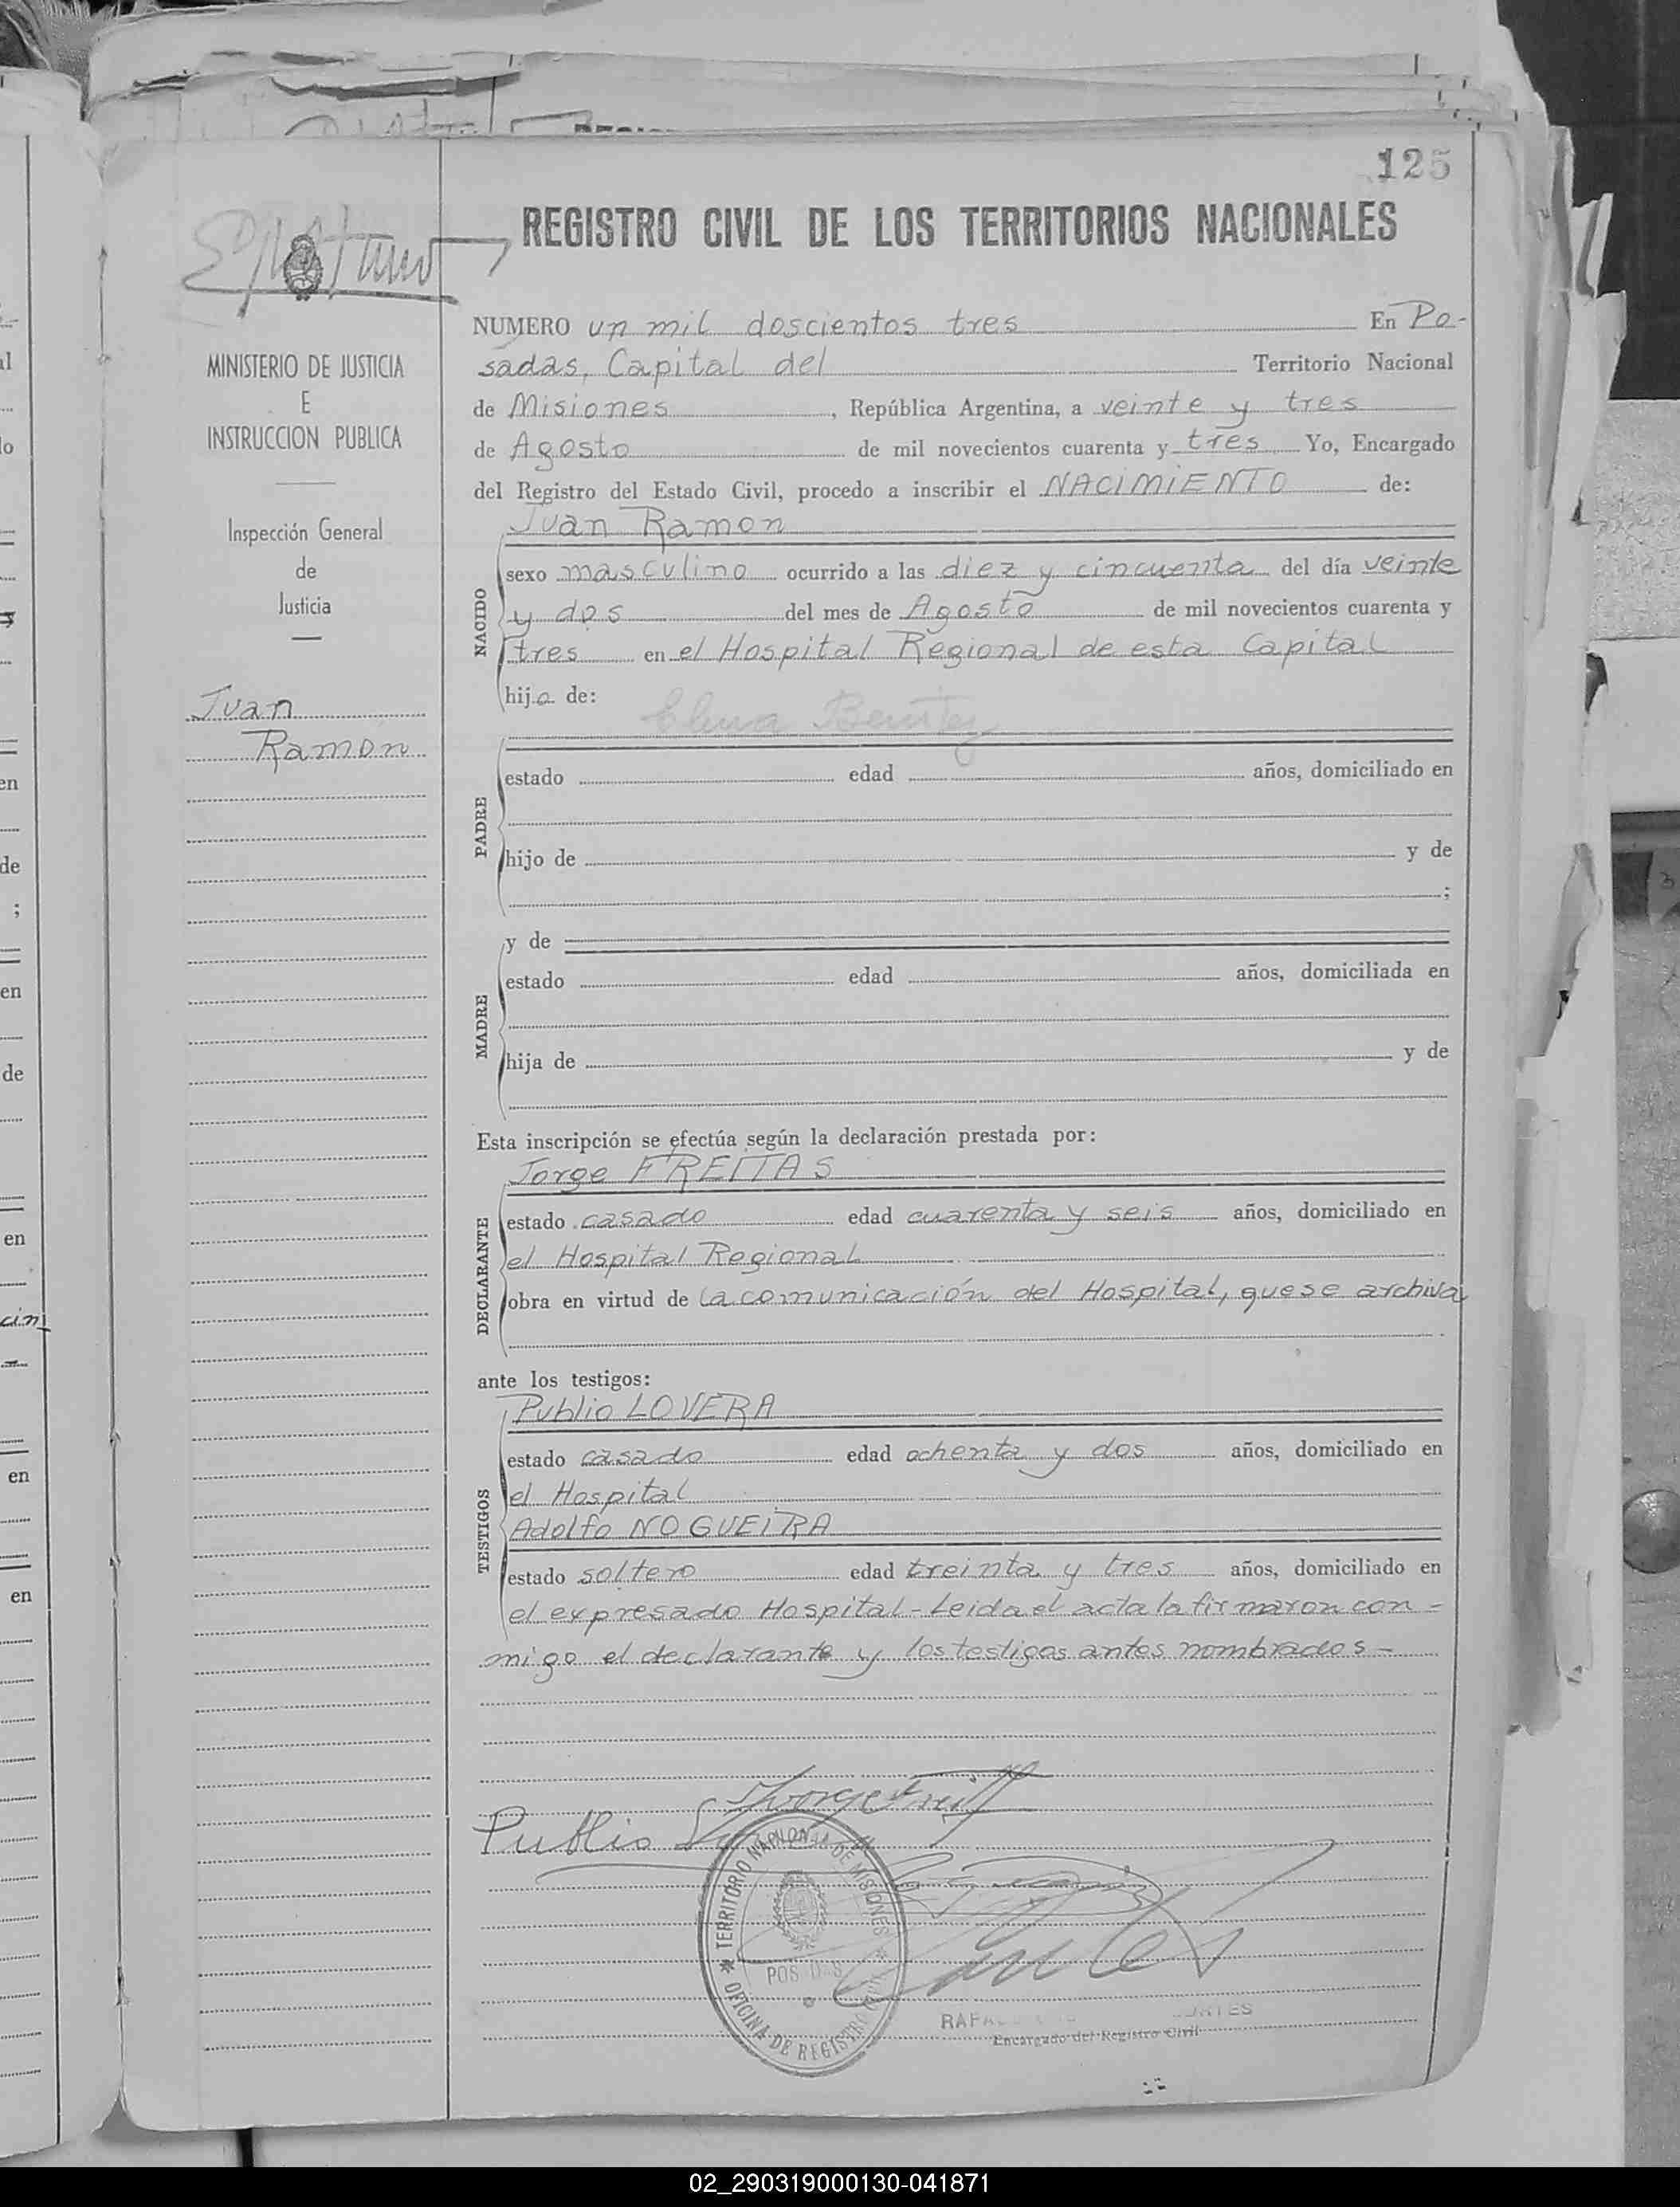 125
REGISTRO CIVIL DE LOS TERRITORIOS NACIONALES
MINISTERIO DE JUSTICIA
E
INSTRUCCION PUBLICA
Inspección General
de
Justicia
Juan
Ramon
NUMERO un mil doscientos tres En Po-
sadas, Capital del Territorio Nacional
de Misiones, República Argentina, a veinte y tres
de Agosto de mil novecientos cuarenta y tres Yo, Encargado
del Registro del Estado Civil, procedo a inscribir el NACIMIENTO de:
NACIDO
Juan Ramon
sexo masculino ocurrido a las diez y cincuenta del día veinte
y dos del mes de Agosto de mil novecientos cuarenta y
tres en el Hospital Regional de esta Capital
hijo de:
Benitez
PADRE
estado edad años, domiciliado en
hijo de y de
;
MADRE
y de
estado edad años, domiciliada en
hija de y de
Esta inscripción se efectúa según la declaración prestada por:
DECLARANTE
Jorge FREITAS
estado casado edad cuarenta y seis años, domiciliado en
el Hospital Regional
obra en virtud de la comunicación del Hospital, que se archiva
ante los testigos:
TESTIGOS
Publio LOVERA
estado casado edad ochenta y dos años, domiciliado en
el Hospital
Adolfo NOGUEIRA
estado soltero edad treinta y tres años, domiciliado en
el expresado Hospital - Leida el acta la firmaron con -
migo el declarante y los testigos antes nombrados -
Jorge
Publio
TERRITORIO NACIONAL DE MISIONES
POSADAS
OFICINA DE REGISTRO
Encargado del Registro Civil
02_290319000130-041871